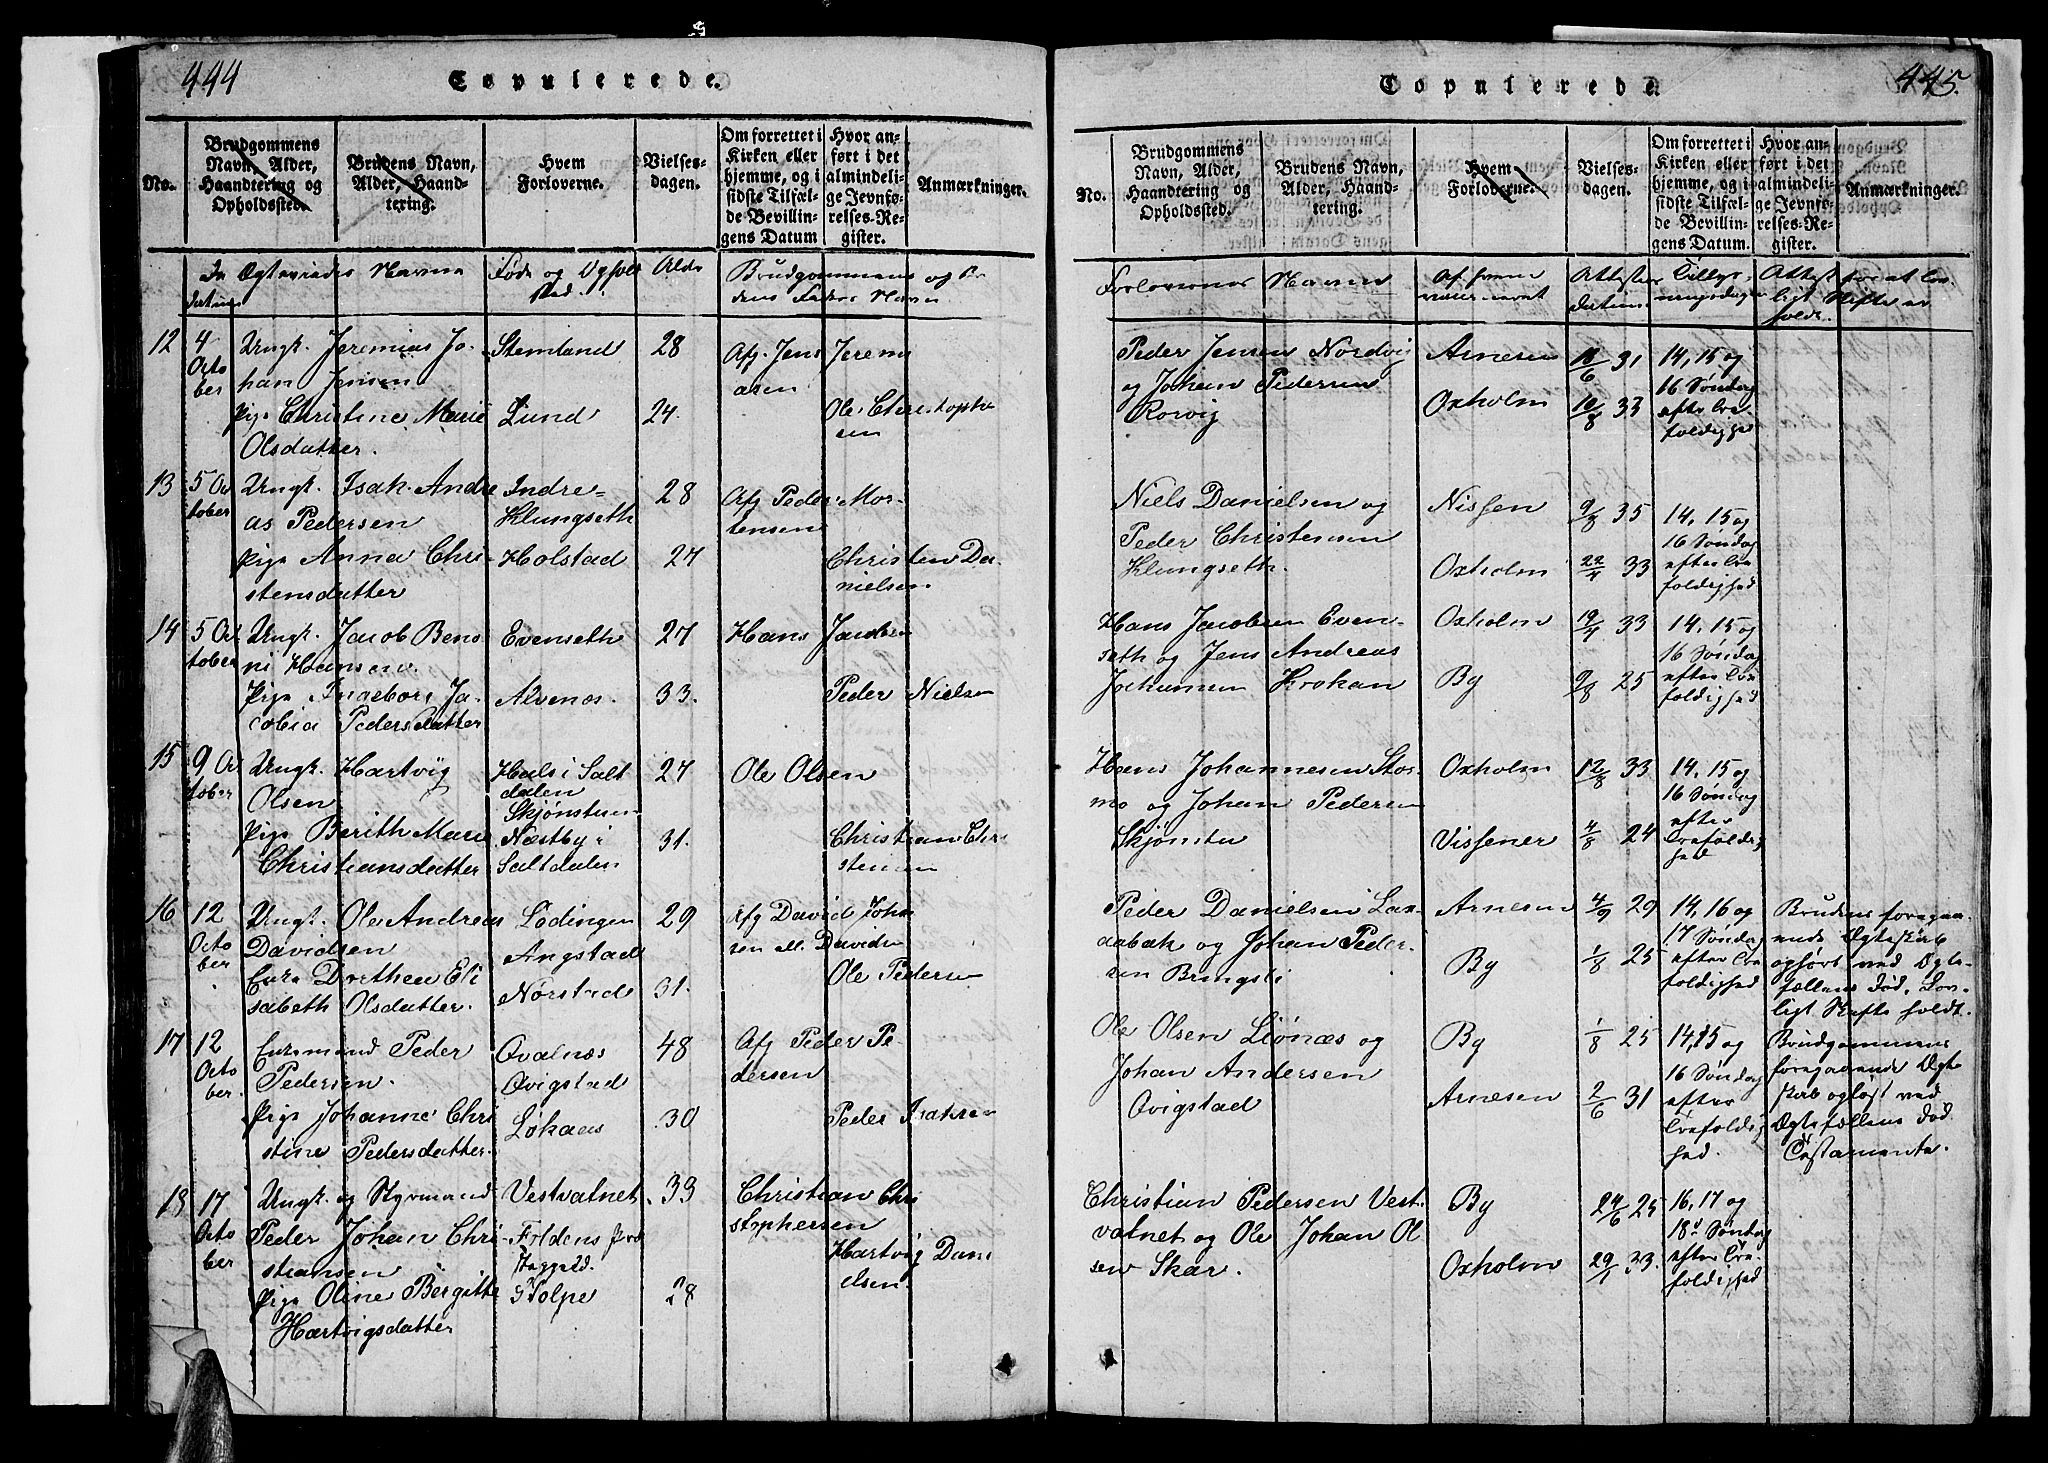 444
Copulerede.
No.
Brudgommens
Navn, Alder,
Haandtering og
Opholdssted.
Brudens Navn,
Alder, Haand-
tering.
Hvem
Forloverne.
Vielses-
dagen.
Om forrettet i
Kirken eller
hjemme, og i
sidste Tilfæl-
de Bevillin-
gens Datum
Hvor an-
ført i det
almindeli-
ge Jevnfø-
relses-Re-
gister.
Anmærkninger.
Navne
Føde og
Alder
Brudgommens og Bru
dens Faders Navn
12 4 Octo ber
Ungk. Jeremias Jo-
han Jensen
Stemland 28
Afg. Jens Jeremi
asen
Pige Christine Marie
Olsdatter.
Lund 24.
Ole Christophe
sen
13 5 Oc tober
Ungk. Isak Andre
as Pedersen
Indre-
Klungseth 28
Afg Peder Mor-
tensen
Pige Anna Chri-
stensdatter
Holstad 27
Christen Da-
nielsen
14 5 Oc tober
Ungk. Jacob Beno
ni Hansen
Evenseth 27
Hans Jacobsen
Pige Ingeborg Ja-
cobia Pedersdatter
Alvenæs. 33.
Peder Nielsen
15 9 Oc tober
Ungk. Hartvig
Olsen
Hals i Salt
dalen
Skjønstuen 27
Ole Olsen
Pige Berith Marie
Christiansdatter
Næstby i
Saltdalen 31.
Christian Chri
stensen
16 12 Octo ber
Ungk. Ole Andreas
Davidsen
Lødingen
Angstad 29
Afg David John
sen all. Davidsen
Enke Dorthea Eli
sabeth Olsdatter.
Nørstad 31.
Ole Pedersen
17 12 Octo ber.
Enkemand Peder
Pedersen.
Qvalnæs
Qvigstad 48
Afg Peder Pe-
dersen
Pige Johanne Chri
stine Pedersdatter.
Løkaas 30
Peder Isaksen
18 17 Octo ber
Ungk. og Styrmand
Peder Johan Chri-
stiansen
Vestvatnet
Foldens 33
Christian Chri
stophersen
Pige Oline Bergitte
Hartvigsdatter
Stolpe 28
Hartvig Dani
elsen
445.
Copulerede.
No.
Brudgommens
Navn, Alder,
Haandtering og
Opholdssted.
Brudens Navn,
Alder, Haand-
tering.
Hvem
Forloverne.
Vielses-
dagen.
Om forrettet i
Kirken eller
hjemme, og i
sidste Tilfæl-
de Bevillin-
gens Datum.
Hvor an-
ført i det
almindeli-
ge Jevnfø-
relses-Re-
gister.
Anmærkninger.
Forlovernes Navne
Af hvem
vaccineret
Attestens
datum
Peder Jensen Nordvig
og Johan Pedersen
Rørvig
Arnesen 18/6 31
Oxholm 10/8 33
14, 15 og
16 Søndag
efter Tre-
foldighe
Niels Danielsen og
Peder Christensen
Klungseth.
Nissen 9/8 35
Oxholm 22/4 33
14, 15 og
16 Søndag
efter Tre
foldighed
Hans Jacobsen Even-
seth og Jens Andreas
Johansen Krokan
Oxholm 19/4 33
By 9/8 25
14, 15 og
16 Søndag
efter Tre
foldighed
Hans Johannesen Stor-
mo og Johan Pedersen
Skjønstu
Oxholm 12/8 33
Vissener 4/8 24
14, 15 og
16 Søndag
efter
Trefoldig
hed
Peder Danielsen Lax-
aabak og Johan Peder-
sen Bringsli
Arnesen 4/9 29
By 1/8 25
14, 16 og
17 Søndag
efter Tre
foldighed
Brudens foregaa-
ende Ægteskab
ophørt ved Ægte-
fællens Død. Lov-
ligt Skifte holdt.
Ole Olsen Liønæs og
Johan Andersen
Qvigstad
By 1/8 25
Arnesen 2/6 31
14, 15 og
16 Søndag
efter
Trefoldig
hed.
Brudgommens
foregaaende Ægte
skab opløst ved
Ægtefællens Død.
Testamente.
Christian Pedersen Vest-
vatnet og Ole Johan Ol
sen Skar.
By 24/6 25
Oxholm 29/1 33.
16, 17 og
18d Søndag
efter Tre-
foldighed